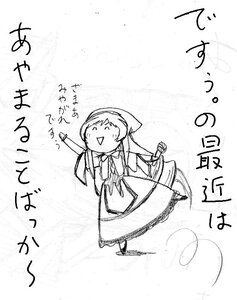 ですぅ。の最近は
ざまあ
みやがれ
ですぅ
あやまることばっか～